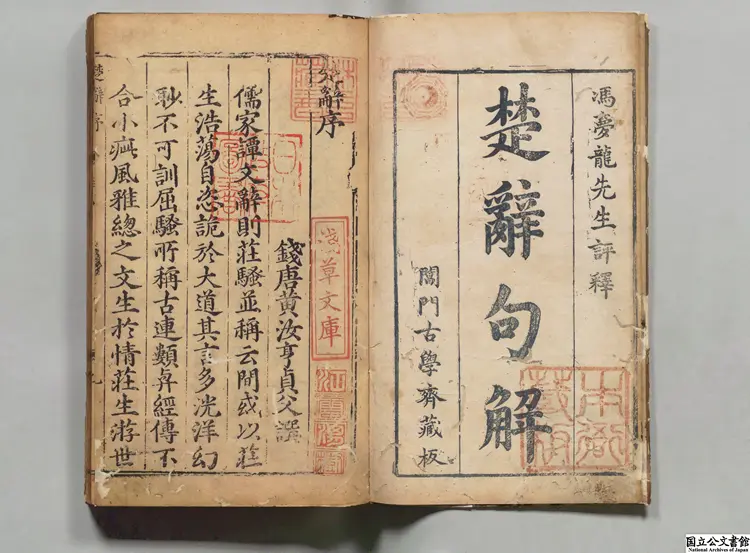 馮夢龍先生評釋
楚辭句解
閶門古學齋藏板
楚辭序
錢唐黃汝亨貞父譔
儒家譚文辭則莊騷並稱云間或以莊
生浩蕩自恣詭於大道其言多洸洋幻
眇不可訓屈騷所稱古連類與經傳不
合小疵風雅總之文生於情莊生游世
楚辭序
淺草文庫
国立公文書館
National Archives of Japan